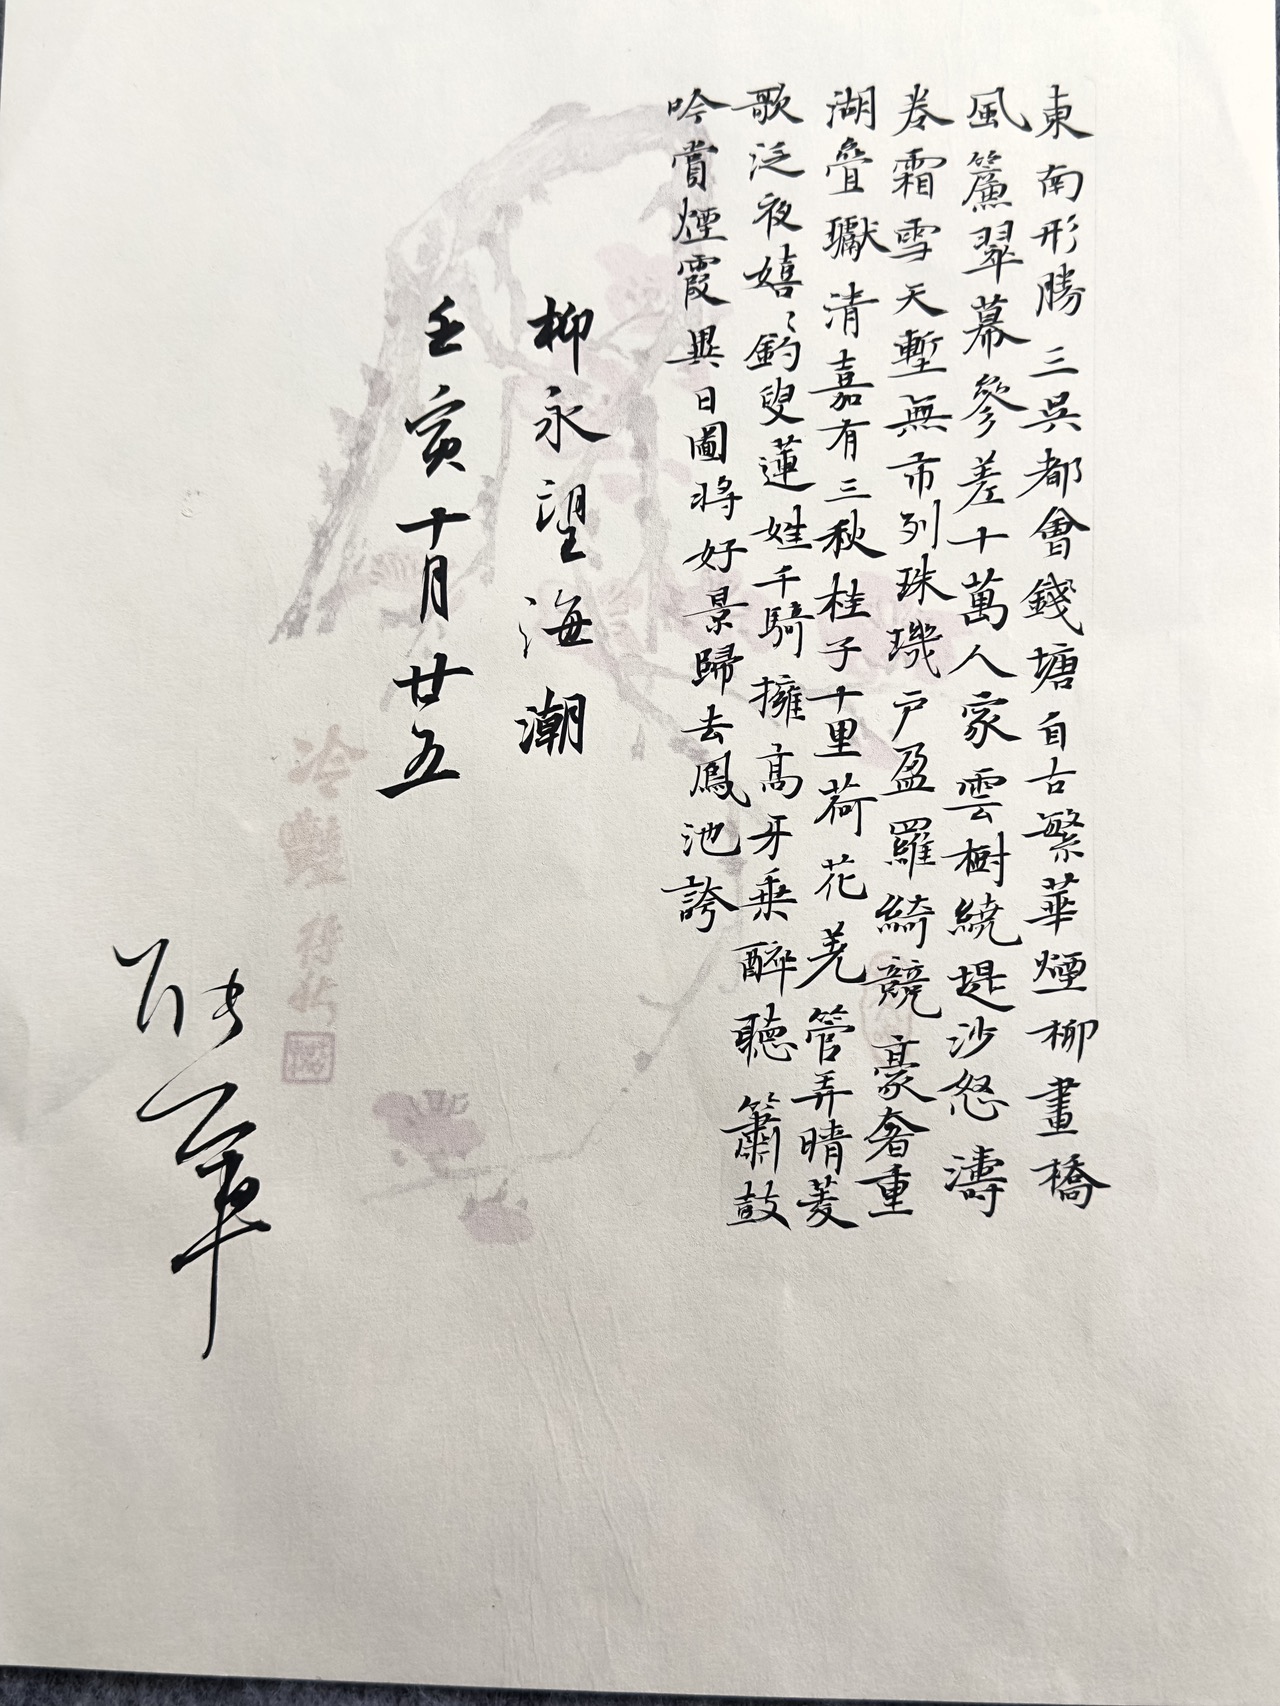 東南形勝三吳都會錢塘自古繁華煙柳畫橋
風簾翠幕參差十萬人家雲樹繞堤沙怒濤
卷霜雪天塹無市列珠璣戶盈羅綺競豪奢重
湖疊巘清嘉有三秋桂子十里荷花羌管弄晴菱
歌泛夜嬉〻釣叟蓮娃千騎擁高牙乘醉聽簫鼓
吟賞煙霞異日圖將好景歸去鳳池誇
柳永望海潮
壬寅十月廿五
冷艷